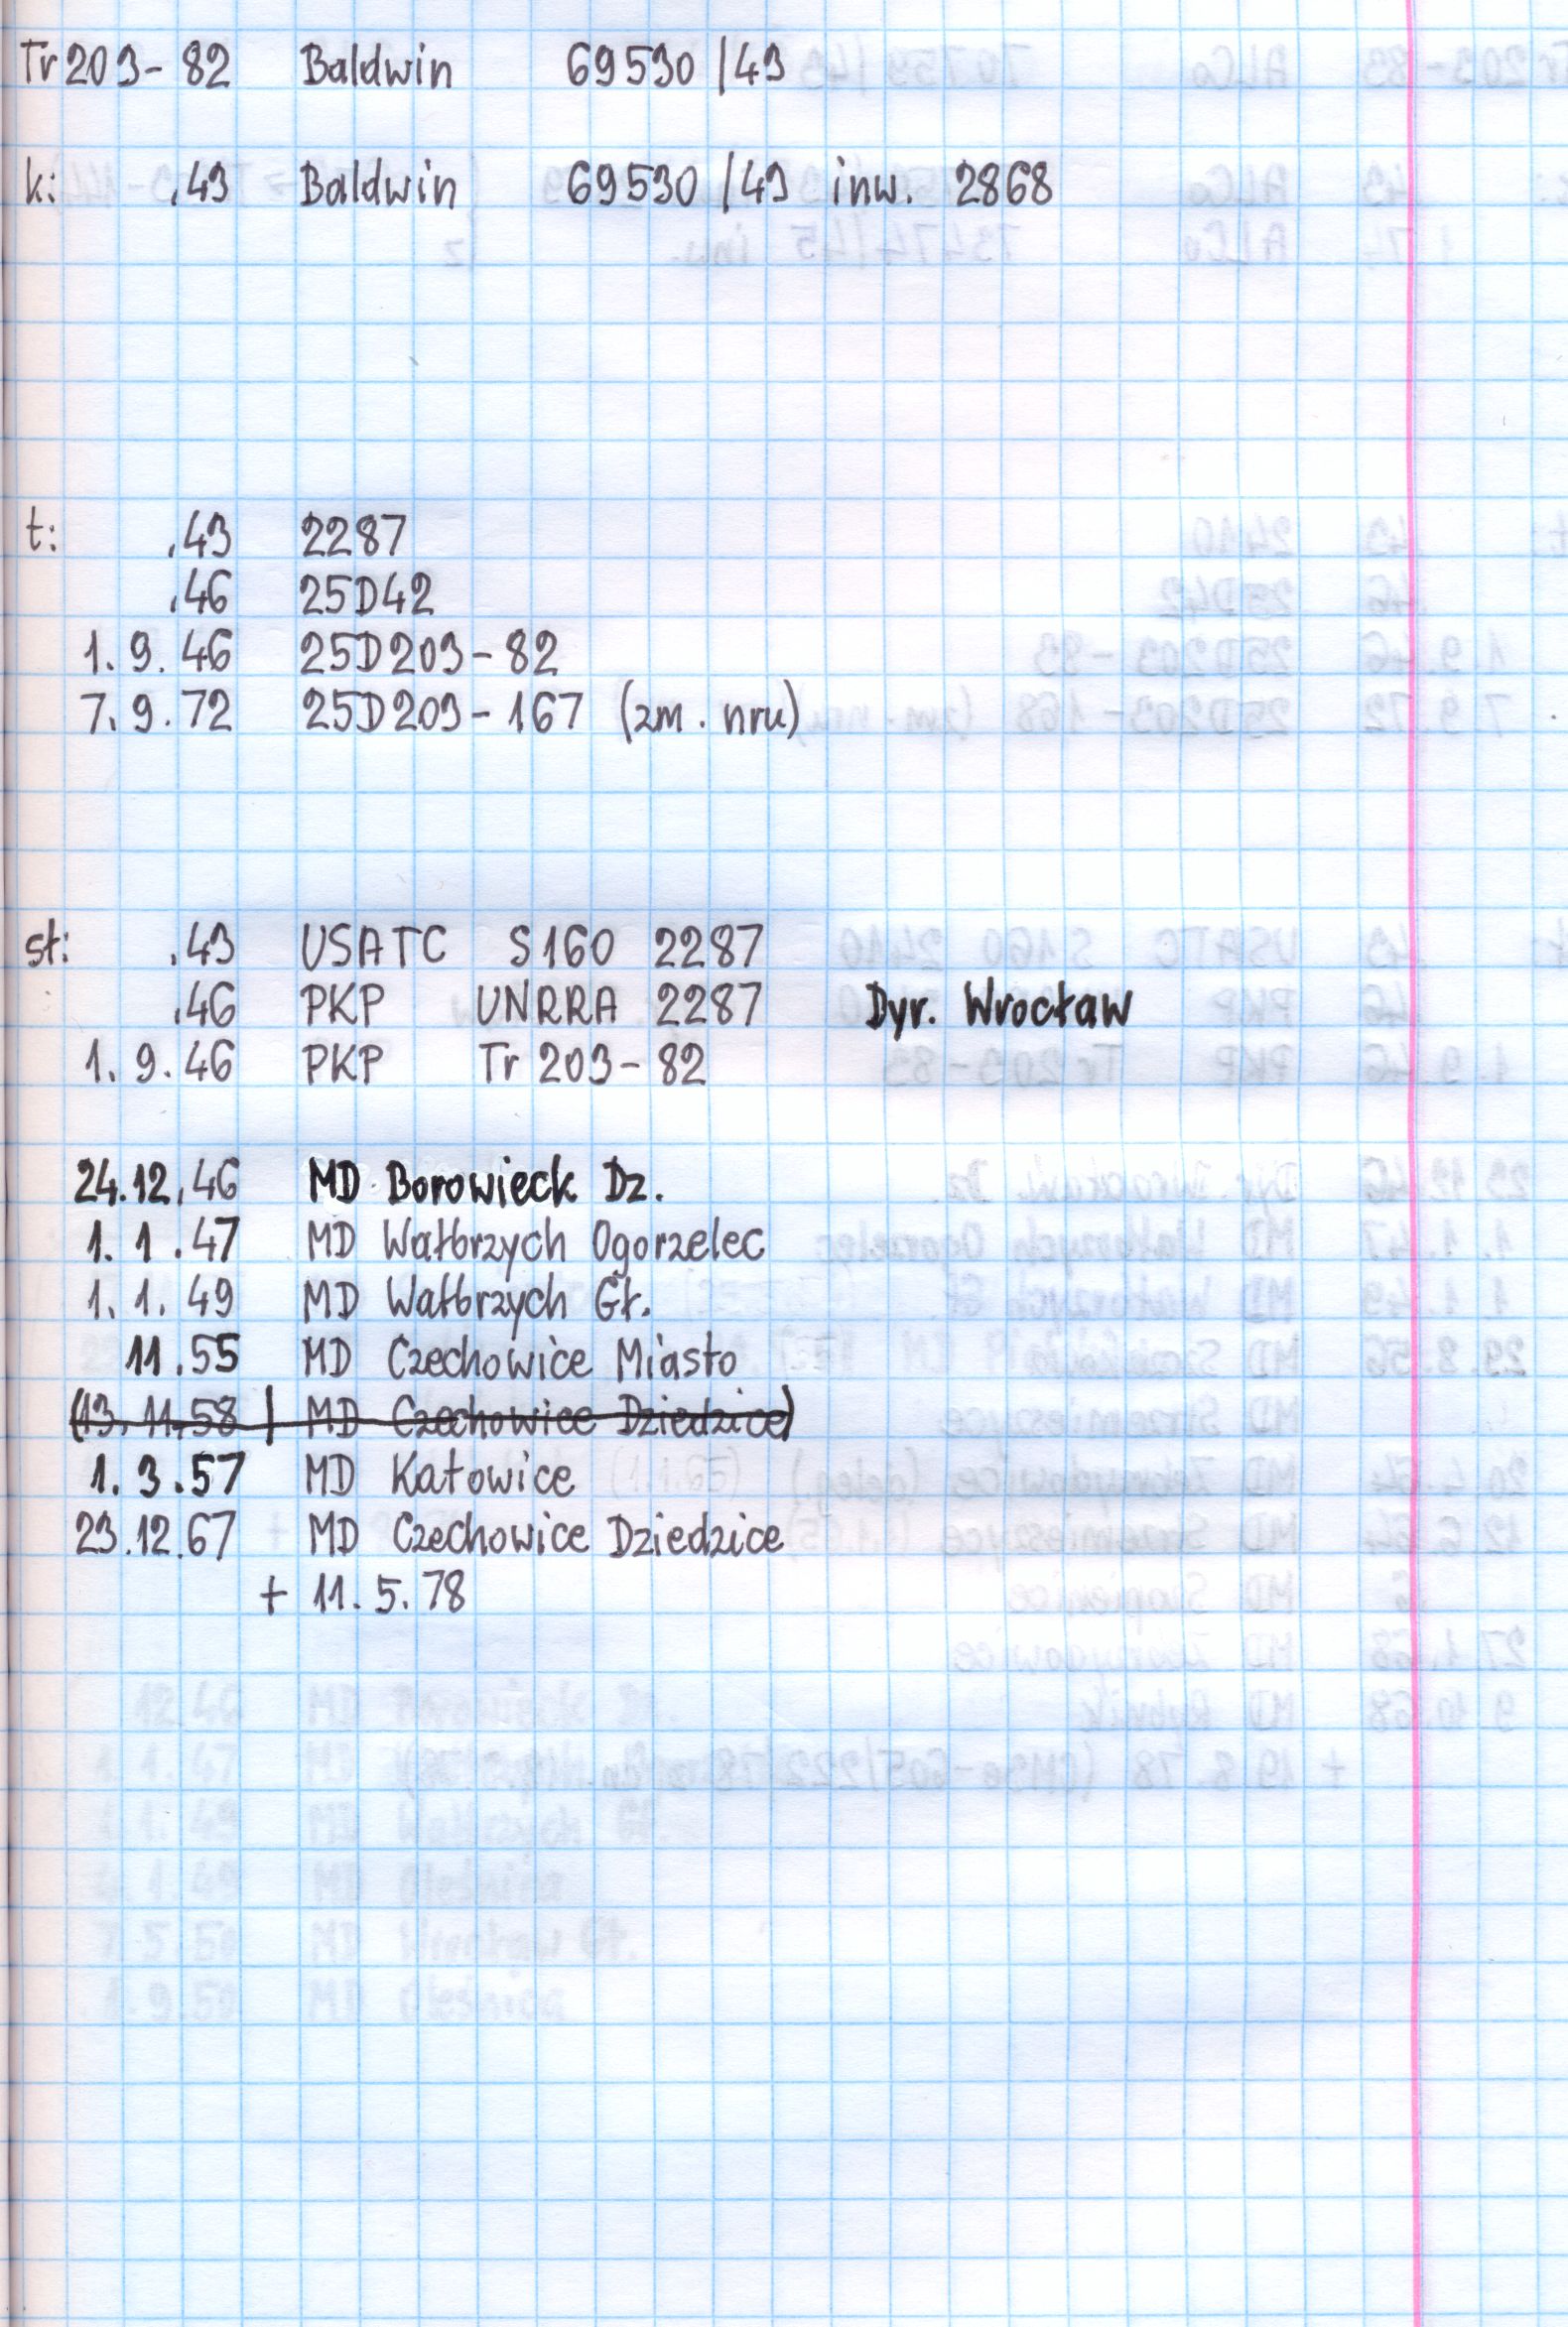 Tr 203-82 Baldwin 69530/43
k: .43 Baldwin 69530/43 inw. 2868
t: .43 2287
.46 25D42
1.9.46 25D203-82
7.9.72 25D203-167 (zm. nru)
st: .43 USATC S160 2287
.46 PKP UNRRA 2287 Dyr. Wrocław
1.9.46 PKP Tr 203-82
24.12.46 MD Borowieck Dz.
1.1.47 MD Wałbrzych Ogorzelec
1.1.49 MD Wałbrzych Gł.
11.55 MD Czechowice Miasto
(13.11.58 | MD Czechowice Dziedzice)
1.3.57 MD Katowice
23.12.67 MD Czechowice Dziedzice
+ 11.5.78